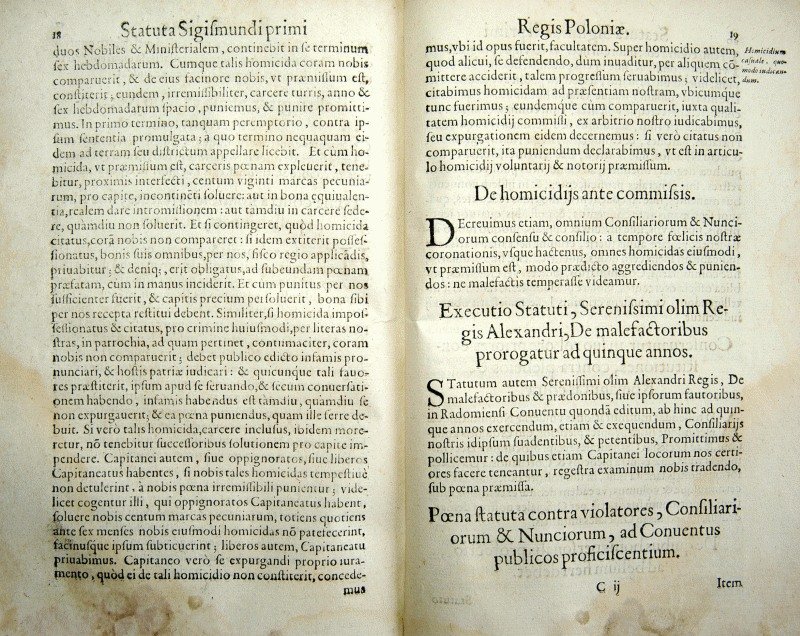 18 Statuta Sigiſmundi primi
duos Nobiles & Miniſterialem, continebit in ſe terminum
ſex hebdomadarum. Cumque talis homicida coram nobis
comparuerit, & de eius facinore nobis, vt præmiſſum eſt,
conſtiterit, eundem, irremiſſibiliter, carcere turris, anno &
ſex hebdomadarum ſpacio, puniemus, & punire promitti-
mus. In primo termino, tanquam peremptorio, contra ip-
ſum ſententia promulgata; à quo termino nequaquam ei-
dem ad terram ſeu diſtrictum appellare licebit. Et cùm ho-
micida, vt præmiſſum eſt, carceris pœnam expleuerit, tene-
bitur, proximis interfecti, centum viginti marcas pecunia-
rum, pro capite, incontinẽti ſoluere: aut in bona equiualen-
tia, realem dare intromiſſionem: aut tamdiu in carcere ſede-
re, quamdiu non ſoluerit. Et ſi contingeret, quòd homicida
citatus, corã nobis non compareret: ſi idem extiterit poſſeſ-
ſionatus, bonis ſuis omnibus, per nos, fiſco regio applicãdis,
priuabitur; & deniq;, erit obligatus, ad ſubeundam pœnam
præfatam, cùm in manus inciderit. Et cùm punitus per nos
ſufficienter fuerit, & capitis precium perſoluerit, bona ſibi
per nos recepta reſtitui debent. Similiter, ſi homicida impoſ-
ſeſſionatus & citatus, pro crimine huiuſmodi, per literas no-
ſtras, in parrochia, ad quam pertinet, contumaciter, coram
nobis non comparuerit; debet publico edicto infamis pro-
nunciari, & hoſtis patriæ iudicari: & quicunque tali fauo-
res præſtiterit, ipſum apud ſe ſeruando, & ſecum conuerſati-
onem habendo, infamis habendus eſt tamdiu, quamdiu ſe
non expurgauerit; & ea pœna puniendus, quam ille ferre de-
buit. Si verò talis homicida, carcere incluſus, ibidem more-
retur, nõ tenebitur ſucceſſoribus ſolutionem pro capite im-
pendere. Capitanei autem, ſiue oppignoratos, ſiue liberos
Capitaneatus habentes, ſi nobis tales homicidas tempeſtiuè
non detulerint, à nobis pœna irremiſſibili punientur; vide-
licet cogentur illi, qui oppignoratos Capitaneatus habent,
ſoluere nobis centum marcas pecuniarum, totiens quotiens
ante ſex menſes nobis eiuſmodi homicidas nõ patefecerint,
facinuſque ipſum ſubticuerint; liberos autem, Capitaneatu
priuabimus. Capitaneo verò ſe expurgandi proprio iura-
mento, quòd ei de tali homicidio non conſtiterit, concede-
mus
Regis Poloniæ. 19
mus, vbi id opus fuerit, facultatem. Super homicidio autem,
quod alicui, ſe defendendo, dum inuaditur, per aliquem cõ-
mittere acciderit, talem progreſſum ſeruabimus; videlicet,
citabimus homicidam ad præſentiam noſtram, vbicumque
tunc fuerimus; eundemque cùm comparuerit, iuxta quali-
tatem homicidij commiſſi, ex arbitrio noſtro iudicabimus,
ſeu expurgationem eidem decernemus: ſi verò citatus non
comparuerit, ita puniendum declarabimus, vt eſt in articu-
lo homicidij voluntarij & notorij præmiſſum.
Homicidium
caſuale, quo-
modo iudican-
dum.
De homicidijs ante commiſsis.
DEcreuimus etiam, omnium Conſiliariorum & Nunci-
orum conſenſu & conſilio: a tempore fœlicis noſtræ
coronationis, vſque hactenus, omnes homicidas eiuſmodi,
vt præmiſſum eſt, modo prædicto aggrediendos & punien-
dos: ne malefactis temperaſſe videamur.
Executio Statuti, Sereniſsimi olim Re-
gis Alexandri, De malefactoribus
prorogatur ad quinque annos.
STatutum autem Sereniſſimi olim Alexandri Regis, De
malefactoribus & prædonibus, ſiue ipſorum fautoribus,
in Radomienſi Conuentu quondã editum, ab hinc ad quin-
que annos exercendum, etiam & exequendum, Conſiliarijs
noſtris idipſum ſuadentibus, & petentibus, Promittimus &
pollicemur: de quibus etiam Capitanei locorum nos certi-
ores facere teneantur, regeſtra examinum nobis tradendo,
ſub pœna præmiſſa.
Pœna ſtatuta contra violatores, Conſiliari-
orum & Nunciorum, ad Conuentus
publicos proficiſcentium.
C ij Item